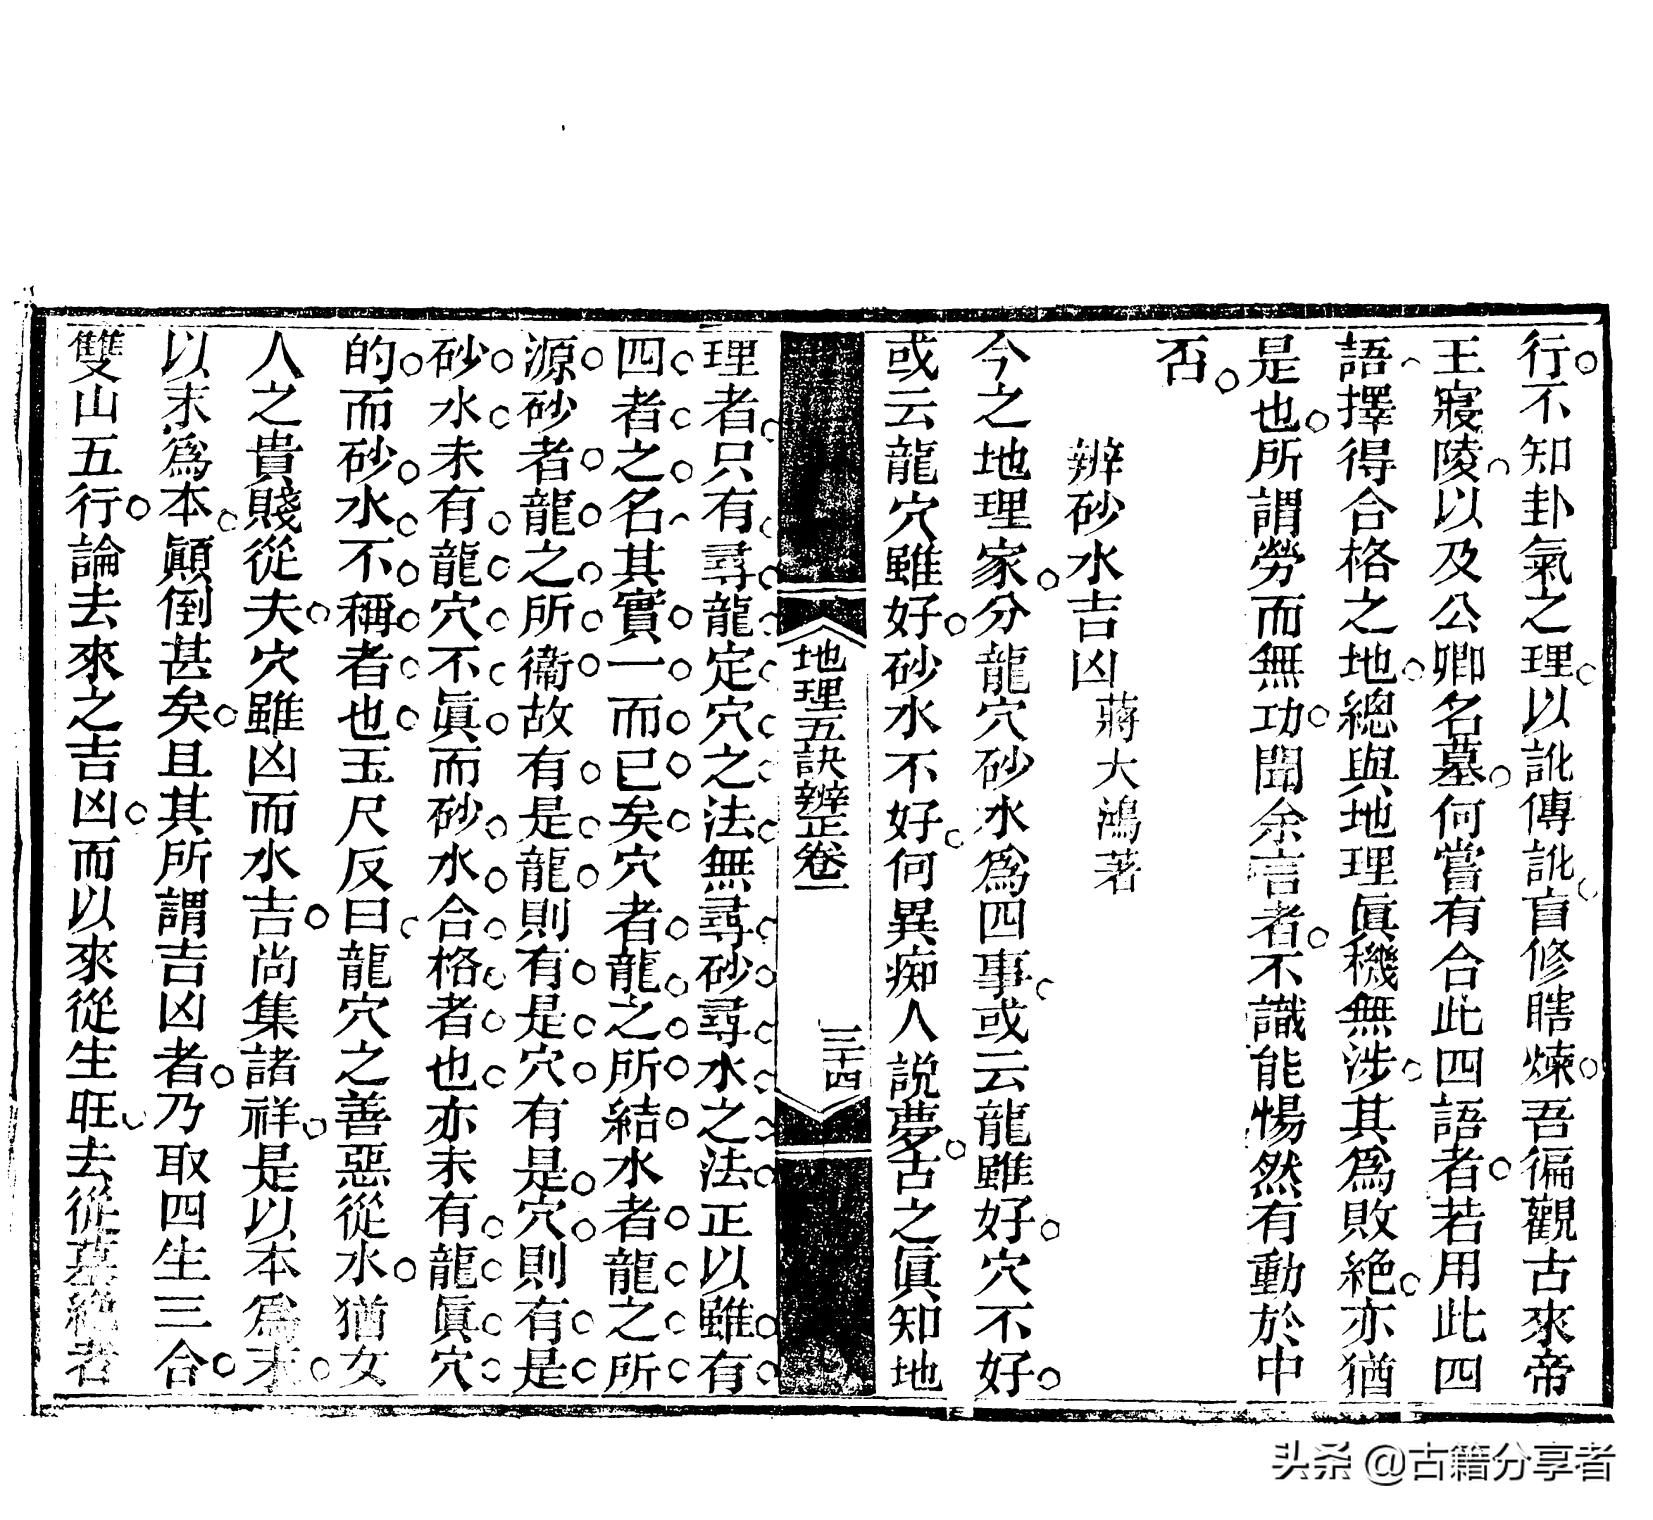 行不知卦氣之理以訛傳訛盲修瞎煉吾徧觀古來帝
王寢陵以及公卿名墓何嘗有合此四語者若用此四
語擇得合格之地總與地理眞機無涉其爲敗絶亦猶
是也所謂勞而無功聞余言者不識能惕然有動於中
否
辨砂水吉凶 蔣大鴻著
今之地理家分龍穴砂水爲四事或云龍雖好穴不好
或云龍穴雖好砂水不好何異痴人説夢古之眞知地
地理五訣辨正卷一 三十四
理者只有尋龍定穴之法無尋砂尋水之法正以雖有
四者之名其實一而已矣穴者龍之所結水者龍之所
源砂者龍之所衞故有是龍則有是穴有是穴則有是
砂水未有龍穴不眞而砂水合格者也亦未有龍眞穴
的而砂水不稱者也玉尺反曰龍穴之善惡從水猶女
人之貴賤從夫穴雖凶而水吉尚集諸祥是以本爲末
以末爲本顚倒甚矣且其所謂吉凶者乃取四生三合
雙山五行論去來之吉凶而以來從生旺去從墓絶者
头条 @古籍分享者